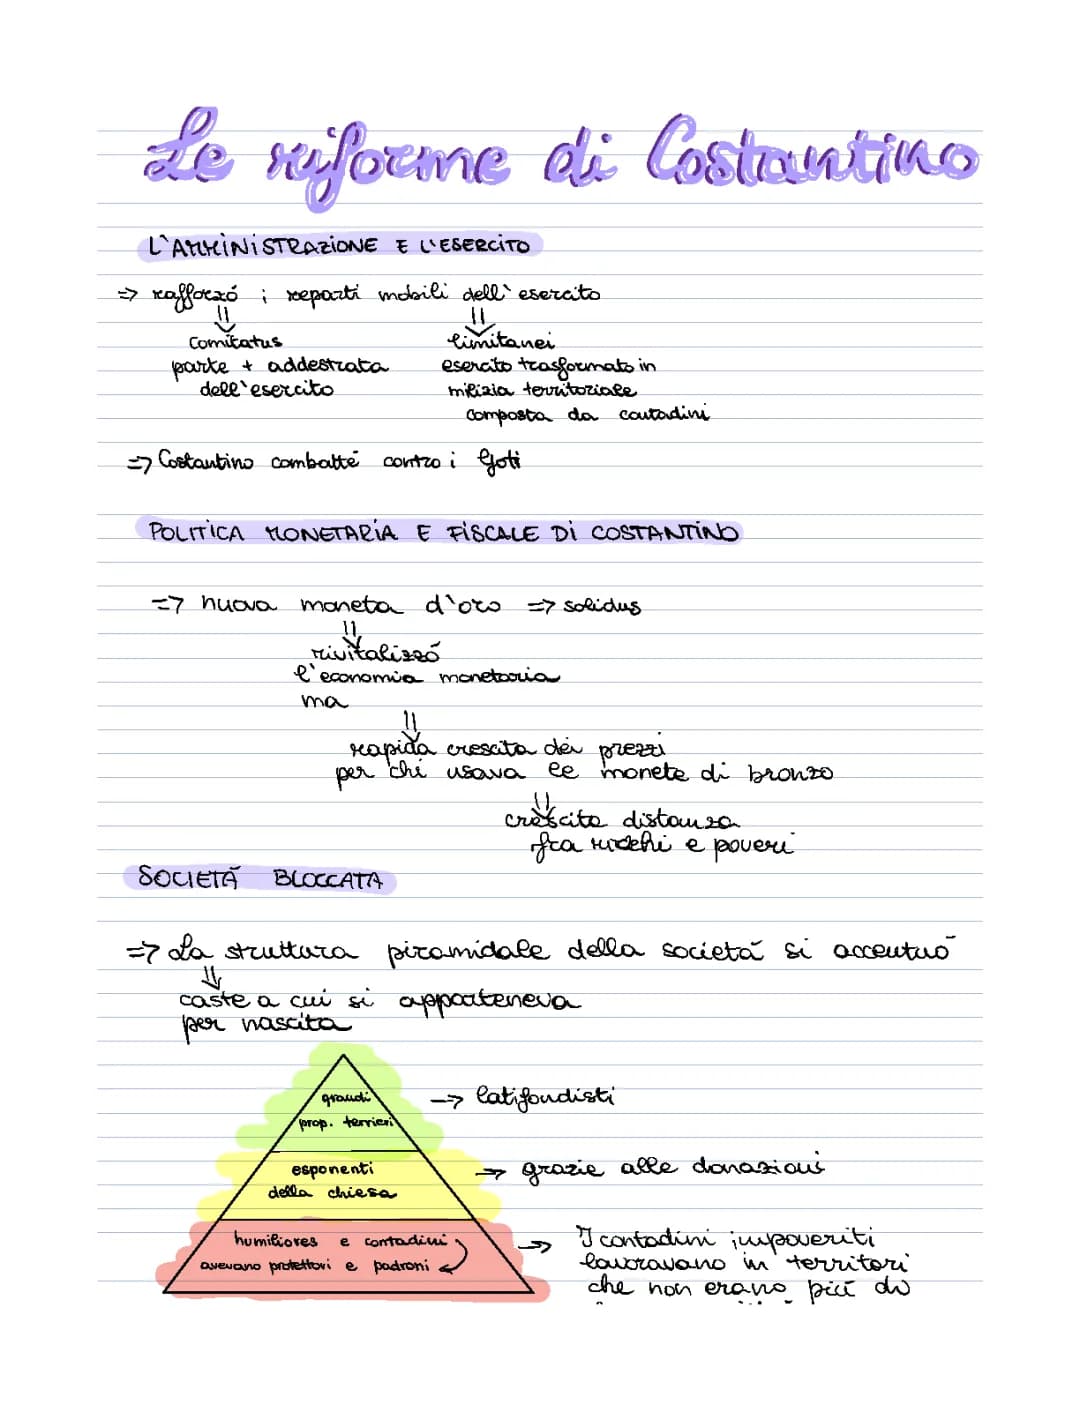 Le riforme di Costantino
L'AMMINISTRAZIONE E L'ESERCITO
=> rafforzó i reparti mobili dell'esercito
Comitatus
parte + addestrata
dell'esercito
limitanei
esercito trasformato in
milizia territoriale
composta da contadini
=> Costantino combatté contro i Goti
POLITICA MONETARIA E FISCALE DI COSTANTINO
=> nuova moneta d'oro => solidus
rivitalizzó
l'economia monetaria
ma
rapida crescita dei prezzi
per chi usava le monete di bronzo
crescita distanza
fra ricchi e poveri
SOCIETÁ BLOCCATA
=> La struttura piramidale della societá si accentuó
caste a cui si apparteneva
per nascita
grandi
prop. terrieri
-> latifondisti
esponenti
della chiesa
-> grazie alle donazioni
humiliores e contadini
avevano protettori e padroni
-> I contadini impoveriti
lavoravano in territori
che non erano piú di